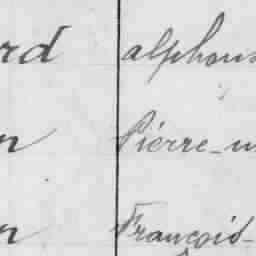 rd alphons
n Pierre-
n François-